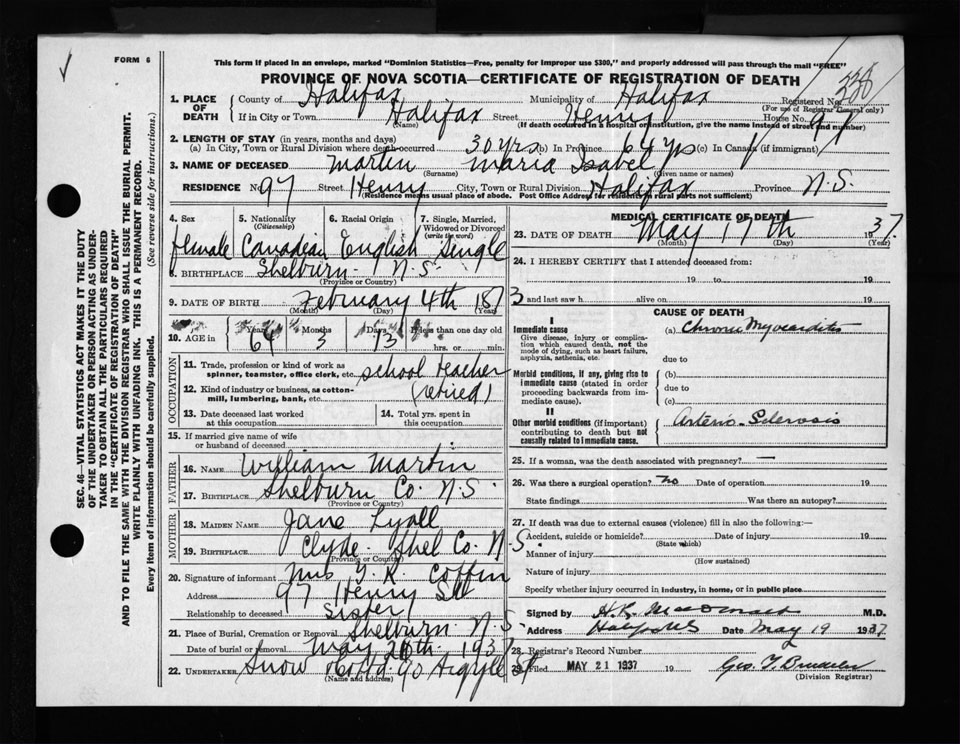 FORM 6
This form if placed in an envelope, marked "Dominion Statistics—Free, penalty for improper use $300," and properly addressed will pass through the mail "FREE"
PROVINCE OF NOVA SCOTIA—CERTIFICATE OF REGISTRATION OF DEATH
Registered No.
(For use of Registrar General only)
1. PLACE OF DEATH
County of Halifax Municipality of Halifax
If in City or Town Halifax Street Henry House No. 97
(Name) (If death occurred in a hospital or institution, give the name instead of street and number)
2. LENGTH OF STAY (in years, months and days)
(a) In City, Town or Rural Division where death occurred 30 yrs (b) In Province 64 yrs (c) In Canada (if immigrant)
3. NAME OF DECEASED Martin Maria Isabel
(Surname) (Given name or names)
RESIDENCE No. 97 Street Henry City, Town or Rural Division Halifax Province N.S.
(Residence means usual place of abode. Post Office Address for residents of rural parts not sufficient)
4. Sex 5. Nationality (Citizenship) 6. Racial Origin 7. Single, Married, Widowed or Divorced (write the word)
female Canadian English Single
8. BIRTHPLACE Shelburn N.S.
(Province or Country)
9. DATE OF BIRTH February 4th 1873
(Month) (Day)
10. AGE in Years Months Days If less than one day old
64 3 13 hrs. or min.
OCCUPATION
11. Trade, profession or kind of work as spinner, teamster, office clerk, etc. school teacher
12. Kind of industry or business, as cotton-mill, lumbering, bank, etc. (retired)
13. Date deceased last worked at this occupation
14. Total yrs. spent in this occupation
15. If married give name of wife or husband of deceased
FATHER
16. NAME William Martin
17. BIRTHPLACE Shelburn Co. N.S.
(Province or Country)
MOTHER
18. MAIDEN NAME Jane Lyall
19. BIRTHPLACE Clyde Shel Co. N.S.
(Province or Country)
20. Signature of informant Mrs K Coffin
Address 97 Henry St
Relationship to deceased Sister
21. Place of Burial, Cremation or Removal Shelburn N.S.
Date of burial or removal May 20th 1937
22. UNDERTAKER Snow 90 Argyle St
(Name and address)
MEDICAL CERTIFICATE OF DEATH
23. DATE OF DEATH May 17th 1937.
(Month) (Day) (Year)
24. I HEREBY CERTIFY that I attended deceased from:
19 to 19
and last saw h alive on 19
CAUSE OF DEATH
I
Immediate cause (a) Chronic Myocarditis
Give disease, injury or complication which caused death, not the mode of dying, such as heart failure, asphyxia, asthenia, etc.
due to
Morbid conditions, if any, giving rise to immediate cause (stated in order proceeding backwards from immediate cause).
(b)
due to
(c)
II
Other morbid conditions (if important) contributing to death but not causally related to immediate cause. Arterio-Sclerosis
25. If a woman, was the death associated with pregnancy? —
26. Was there a surgical operation? no Date of operation 19
State findings Was there an autopsy?
27. If death was due to external causes (violence) fill in also the following:—
Accident, suicide or homicide? Date of injury 19
(State which)
Manner of injury
(How sustained)
Nature of injury
Specify whether injury occurred in industry, in home, or in public place
Signed by M.D.
Address Date May 19 1937
28. Registrar's Record Number
29. Filed MAY 21 1937 19
(Division Registrar)
SEC. 46—VITAL STATISTICS ACT MAKES IT THE DUTY
OF THE UNDERTAKER OR PERSON ACTING AS UNDER-
TAKER TO OBTAIN ALL THE PARTICULARS REQUIRED
IN THE "CERTIFICATE OF REGISTRATION OF DEATH"
AND TO FILE THE SAME WITH THE DIVISION REGISTRAR WHO SHALL ISSUE THE BURIAL PERMIT.
WRITE PLAINLY WITH UNFADING INK. THIS IS A PERMANENT RECORD.
Every item of information should be carefully supplied. (See reverse side for instructions.)